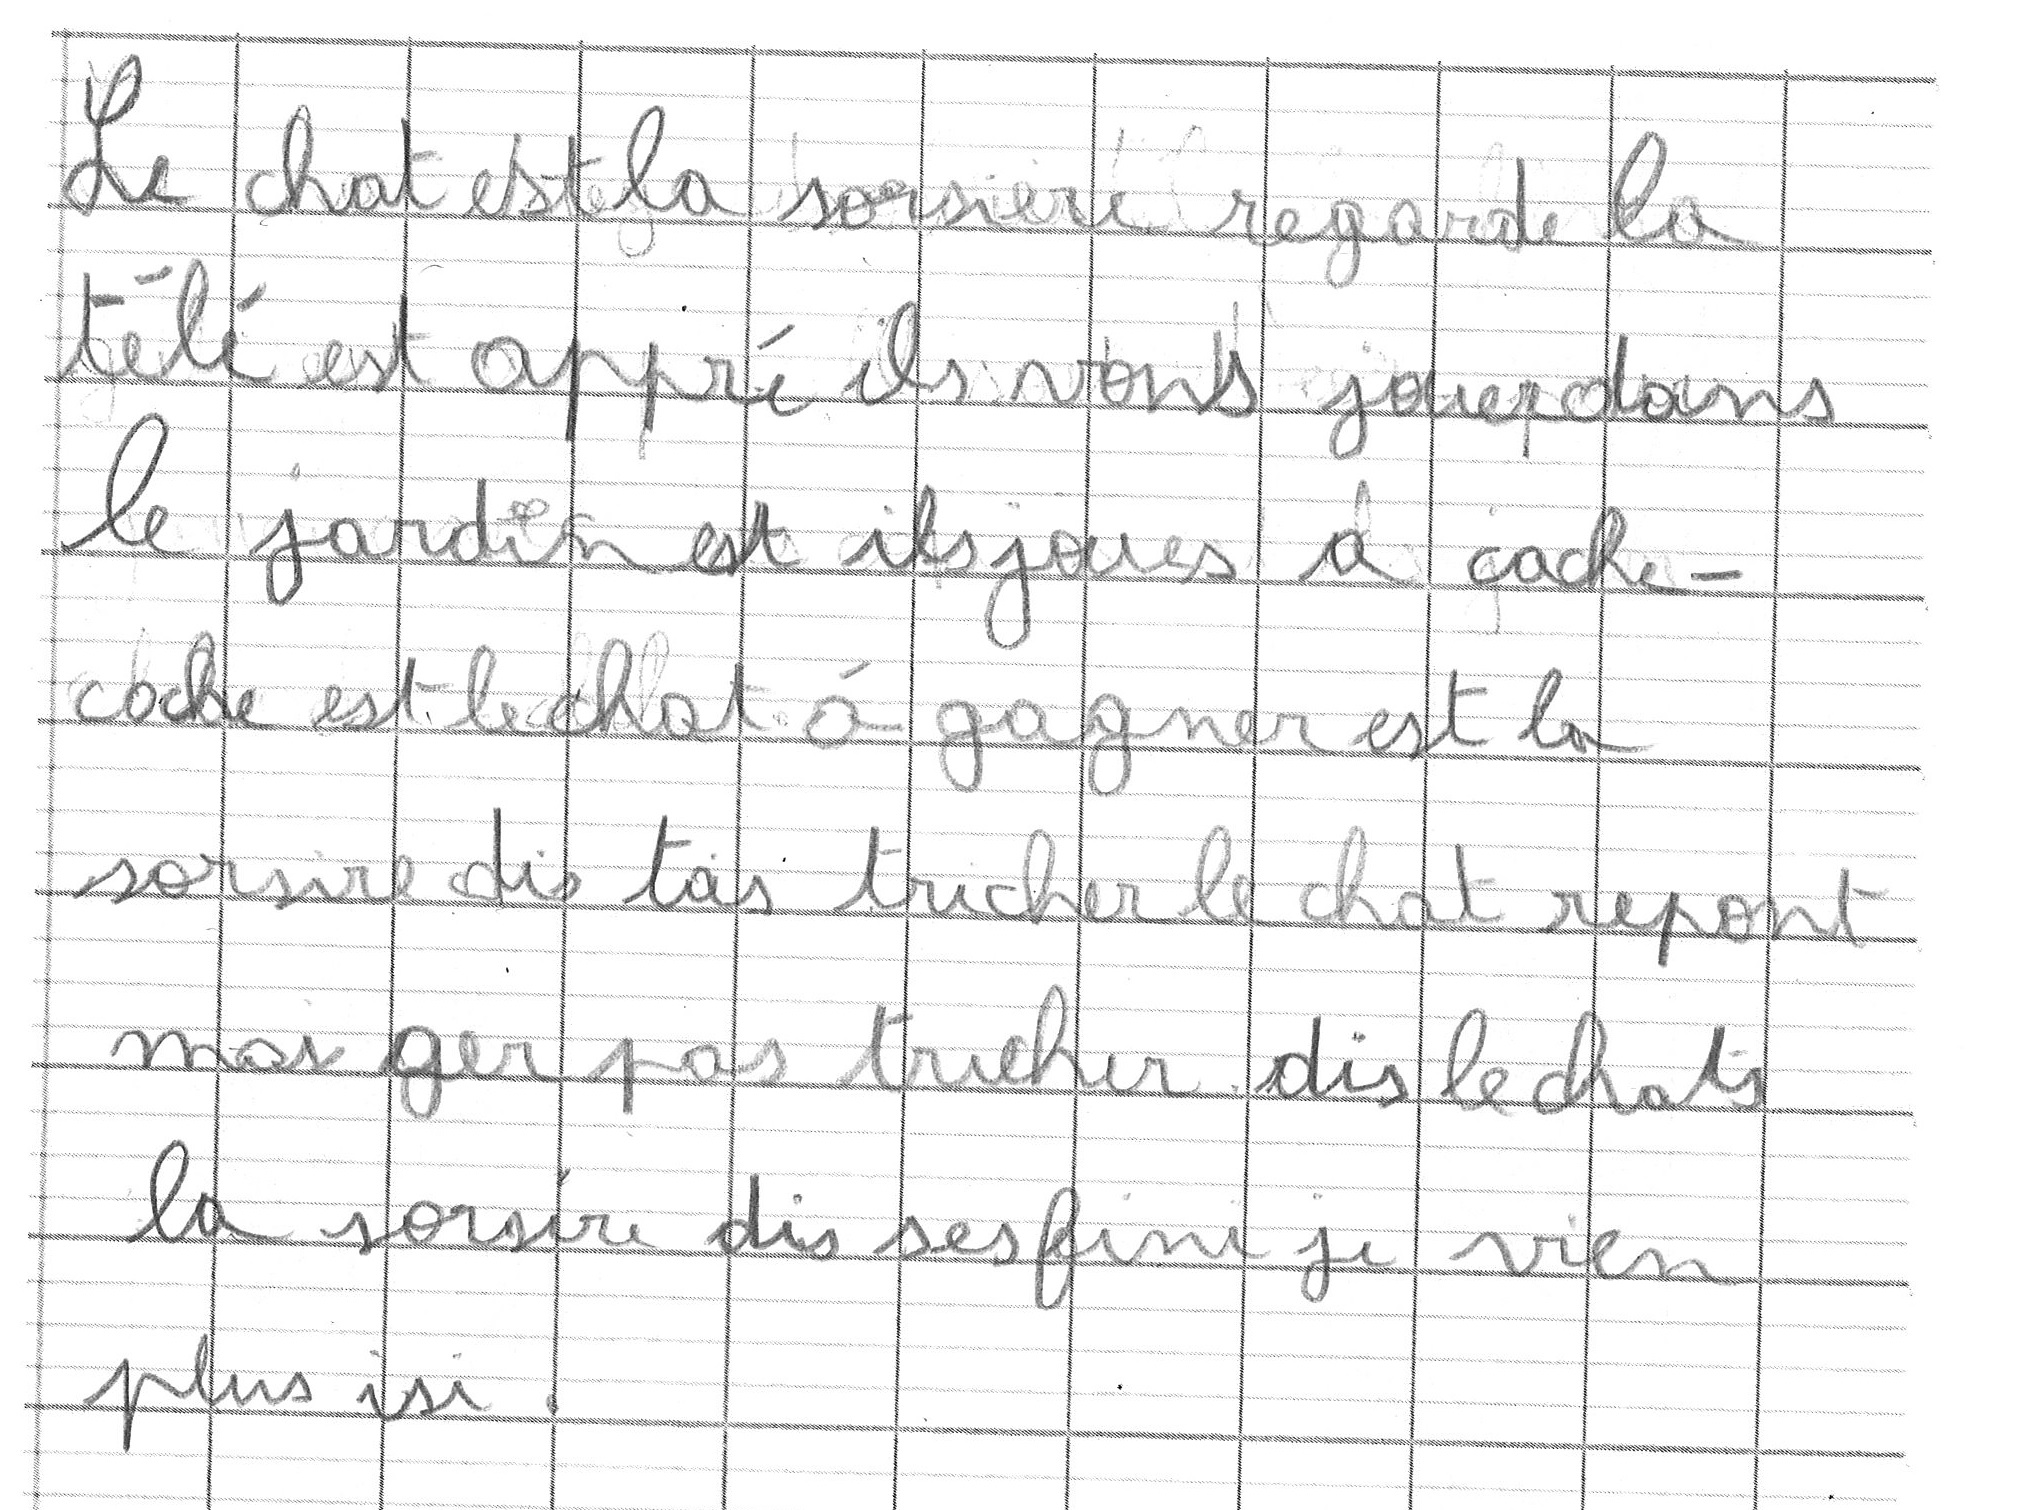 Le chat est la sorsiere regarde la
télé est appré ils vont jouer dans
le jardin est ils joues a cache-
cache est le chat á gagner est la
sorsire dis tas tricher le chat repont
moi ger pas tricher dis le chats
la sorsire dis ses fini je vien
plus isi.